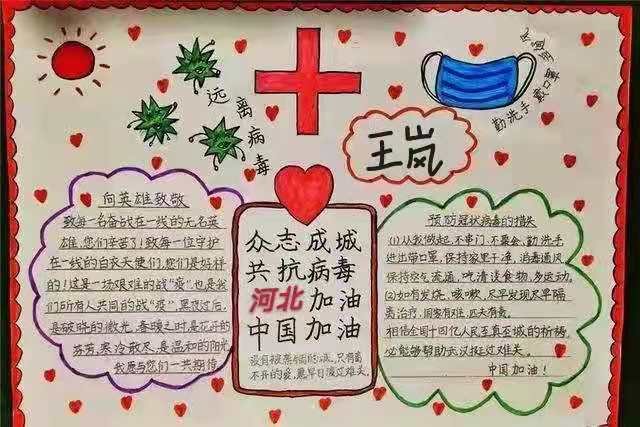 远离病毒
不恐慌
勤洗手 戴口罩
王岚
向英雄致敬
致每一名奋战在一线的无名英
雄,您们辛苦了!致每一位守护
在一线的白衣天使们,您们是好样
的!这是一场艰难的战“疫”也是我
们所有人共同的战“疫”,黑夜过后,
是破晓的微光,春暖之时是花开的
芬芳,寒冷散尽,是温和的阳光
我愿与您们一共期待
众志成城
共抗病毒
河北加油
中国加油
没有被熬不过的冬,只有离
不开的疫,愿早日渡过难关。
预防冠状病毒的措失
(1)从我做起,不串门,不聚会,勤洗手
进出带口罩,保持家里干净,消毒通风
保持空气流通,吃清淡食物,多运动。
(2)如有发烧,咳嗽,尽早发现尽早隔
离治疗,国家有难,匹夫有责。
相信全国十四亿人民至真至城的祈祷,
必能够帮助武汉挺过难关。
中国加油!